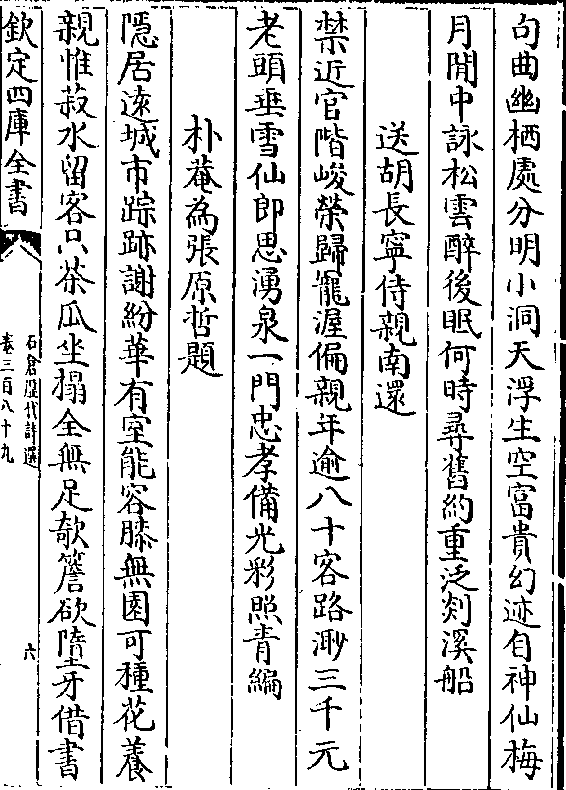 句曲幽栖處分明小洞天浮生空富貴幻迹自神仙梅
月閒中詠松雲醉後眠何時尋舊約重泛剡溪船
送胡長寧侍親南還
禁近官階峻榮歸寵渥偏親年逾八十客路渺三千元
老頭垂雪仙郎思湧泉一門忠孝備光彩照青編
朴菴為張原哲題
隠居遠城市踪跡謝紛華有室能容膝無園可種花養
親惟菽水留客只茶瓜坐榻全無足欹簷欲墮牙借書
欽定四庫全書
石倉歷代詩選
卷三百八十九
六